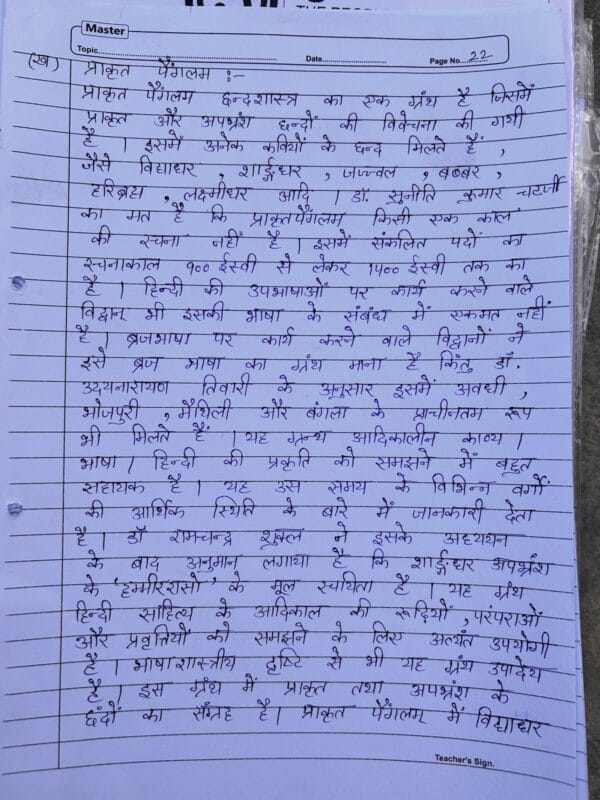 Master
Topic
Date
Page No. 22
(ख) प्राकृत पैंगलम :-
प्राकृत पैंगलम छन्दशास्त्र का एक ग्रंथ है जिसमें
प्राकृत और अपभ्रंश छन्दों की विवेचना की गयी
है । इसमें अनेक कवियों के छन्द मिलते हैं ,
जैसे विद्याधर , शार्ङ्गधर , जज्ज्वल , बब्बर ,
हरिब्रह्म , लक्ष्मीधर आदि । डॉ. सुनीति कुमार चटर्जी
का मत है कि प्राकृतपैंगलम किसी एक काल
की रचना नहीं है । इसमें संकलित पदों का
रचनाकाल १०० ईस्वी से लेकर 1५०० ईस्वी तक का
है । हिन्दी की उपभाषाओं पर कार्य करने वाले
विद्वान् भी इसकी भाषा के संबंध में एकमत नहीं
है । ब्रजभाषा पर कार्य करने वाले विद्वानों ने
इसे ब्रज भाषा का ग्रंथ माना है किंतु डॉ.
उदयनारायण तिवारी के अनुसार इसमें अवधी ,
भोजपुरी , मैथिली और बंगला के प्राचीनतम रूप
भी मिलते हैं । यह ग्रन्थ आदिकालीन काव्य ।
भाषा । हिन्दी की प्रकृति को समझने में बहुत
सहायक है । यह उस समय के विभिन्न वर्गों
की आर्थिक स्थिति के बारे में जानकारी देता
है । डॉ रामचन्द्र शुक्ल ने इसके अध्ययन
के बाद अनुमान लगाया है कि शार्ङ्गधर अपभ्रंश
के 'हम्मीररासो' के मूल रचयिता है । यह ग्रंथ
हिन्दी साहित्य के आदिकाल की रूढियों , परंपराओं
और प्रवृत्तियों को समझने के लिए अत्यंत उपयोगी
है । भाषाशास्त्रीय दृष्टि से भी यह ग्रंथ उपादेय
है । इस ग्रंथ में प्राकृत तथा अपभ्रंश के
छंदों का संग्रह है । प्राकृत पैंगलम् में विद्याधर
Teacher's Sign.